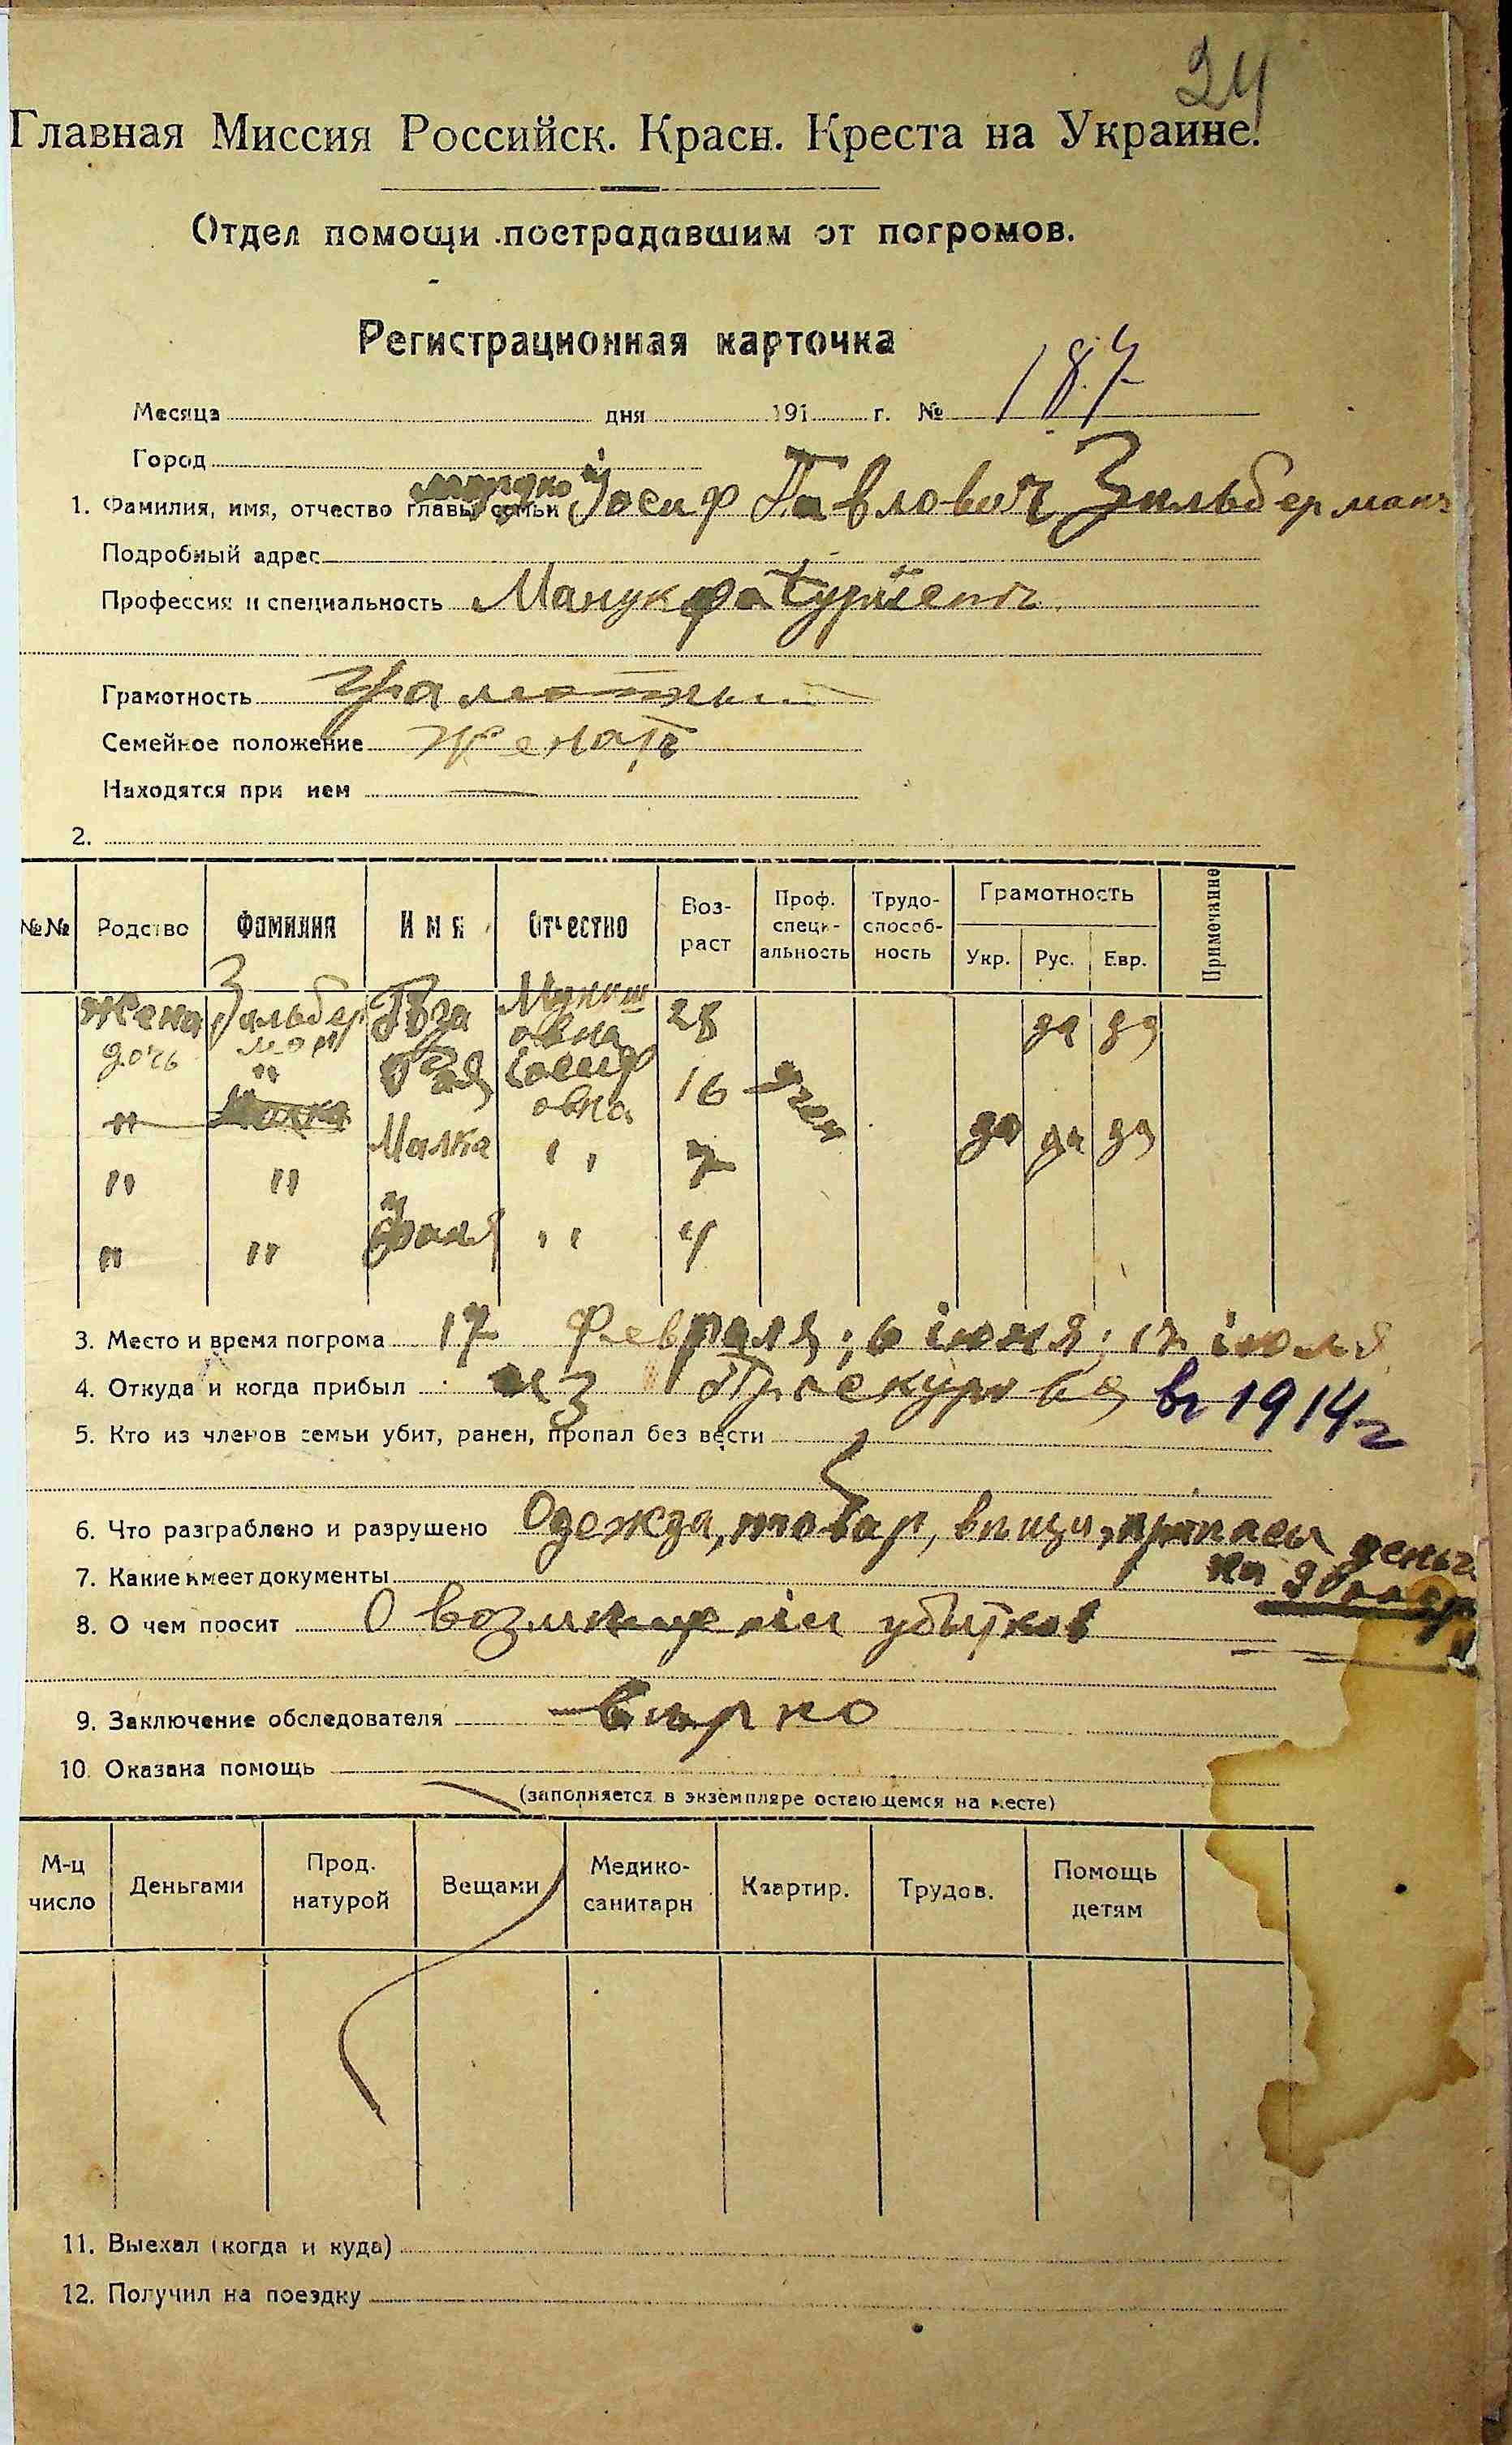 24
Главная Миссия Российск. Красн. Креста на Украине.
Отдел помощи пострадавшим от погромов.
Регистрационная карточка
Месяца дня 191 г. № 187
Город
1. Фамилия, имя, отчество главы семьи Іосиф Павлович Зильберманъ
Подробный адрес
Профессия и специальность Мануфактуристъ
Грамотность Грамотный
Семейное положение женатъ
Находятся при нем —
2.
№№ Родство Фамилия Имя Отчество Возраст Проф. специальность Трудоспособность Грамотность Укр. Рус. Евр. Примечание
жена Зильберман овна 28 да да
дочь " Іосифовна 16 да да да
" " Малка " 7
" " " 4
3. Место и время погрома 17 Февраля; 6 іюня; іюля
4. Откуда и когда прибыл из Проскурова въ 1914 г
5. Кто из членов семьи убит, ранен, пропал без вести
6. Что разграблено и разрушено Одежда, товар, вещи, припасы деньги
на
7. Какие имеет документы
8. О чем просит О возмещеніи убытков
9. Заключение обследователя вѣрно
10. Оказана помощь
(заполняется в экземпляре остающемся на месте)
М-ц число Деньгами Прод. натурой Вещами Медико-санитарн Квартир. Трудов. Помощь детям
11. Выехал (когда и куда)
12. Получил на поездку